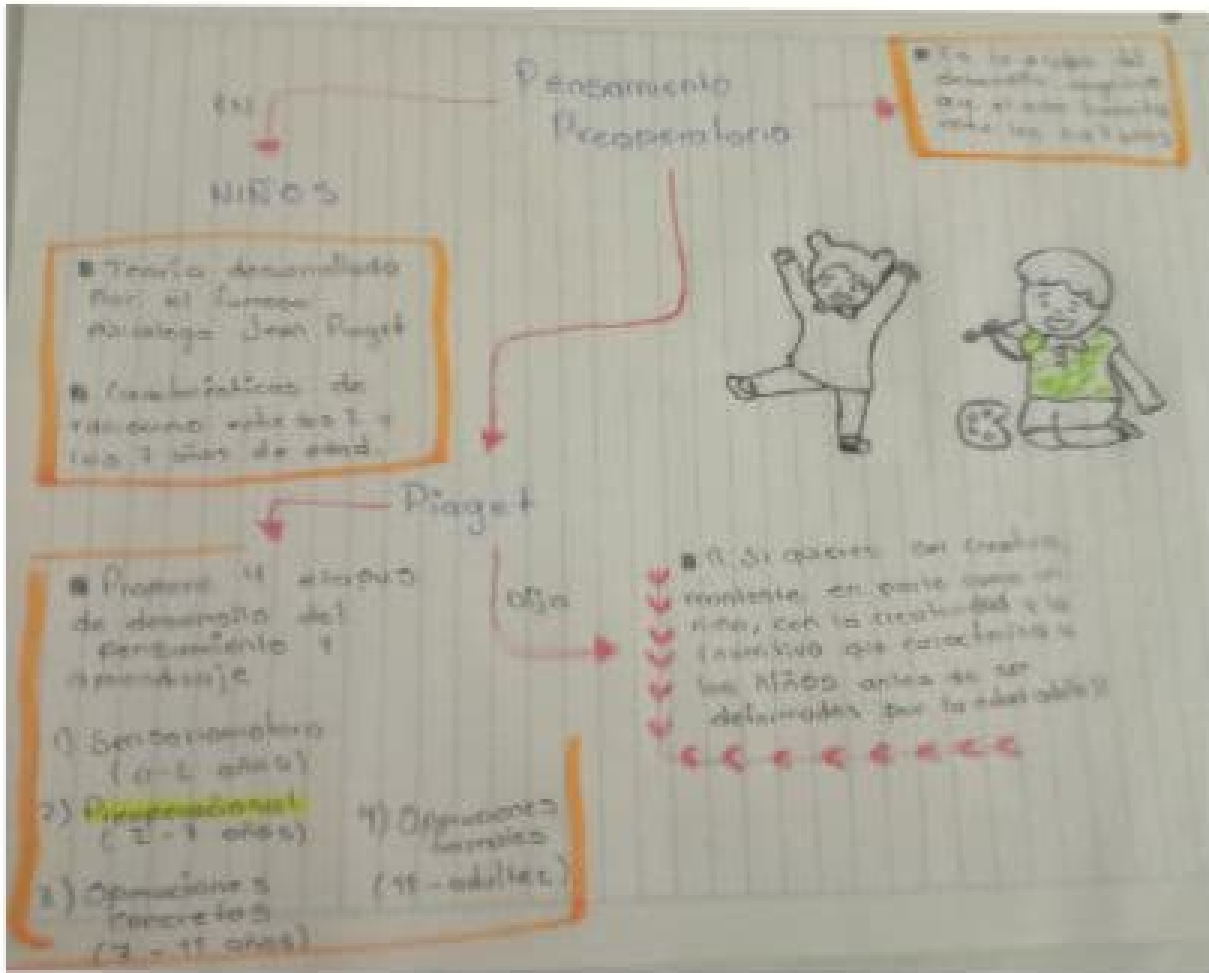 Pensamiento
Preoperatorio
en
NIÑOS
Es la etapa del
desarrollo
que el niño
entre los 2 a 7 años
Teoría desarrollada
por el famoso
psicólogo Jean Piaget
Características de
entre los 2 y
los 7 años de edad.
Piaget
Propuso 4 etapas
de desarrollo del
pensamiento y
aprendizaje
1) Sensoriomotora
(0-2 años)
2) Preoperacional
(2-7 años)
3) Operaciones
concretas
(7-11 años)
4) Operaciones
formales
(11-adultez)
Dijo
Si quieres ser creativo,
mantente en parte como un
niño, con la creatividad y la
inventiva que caracteriza a
los NIÑOS antes de ser
deformados por la